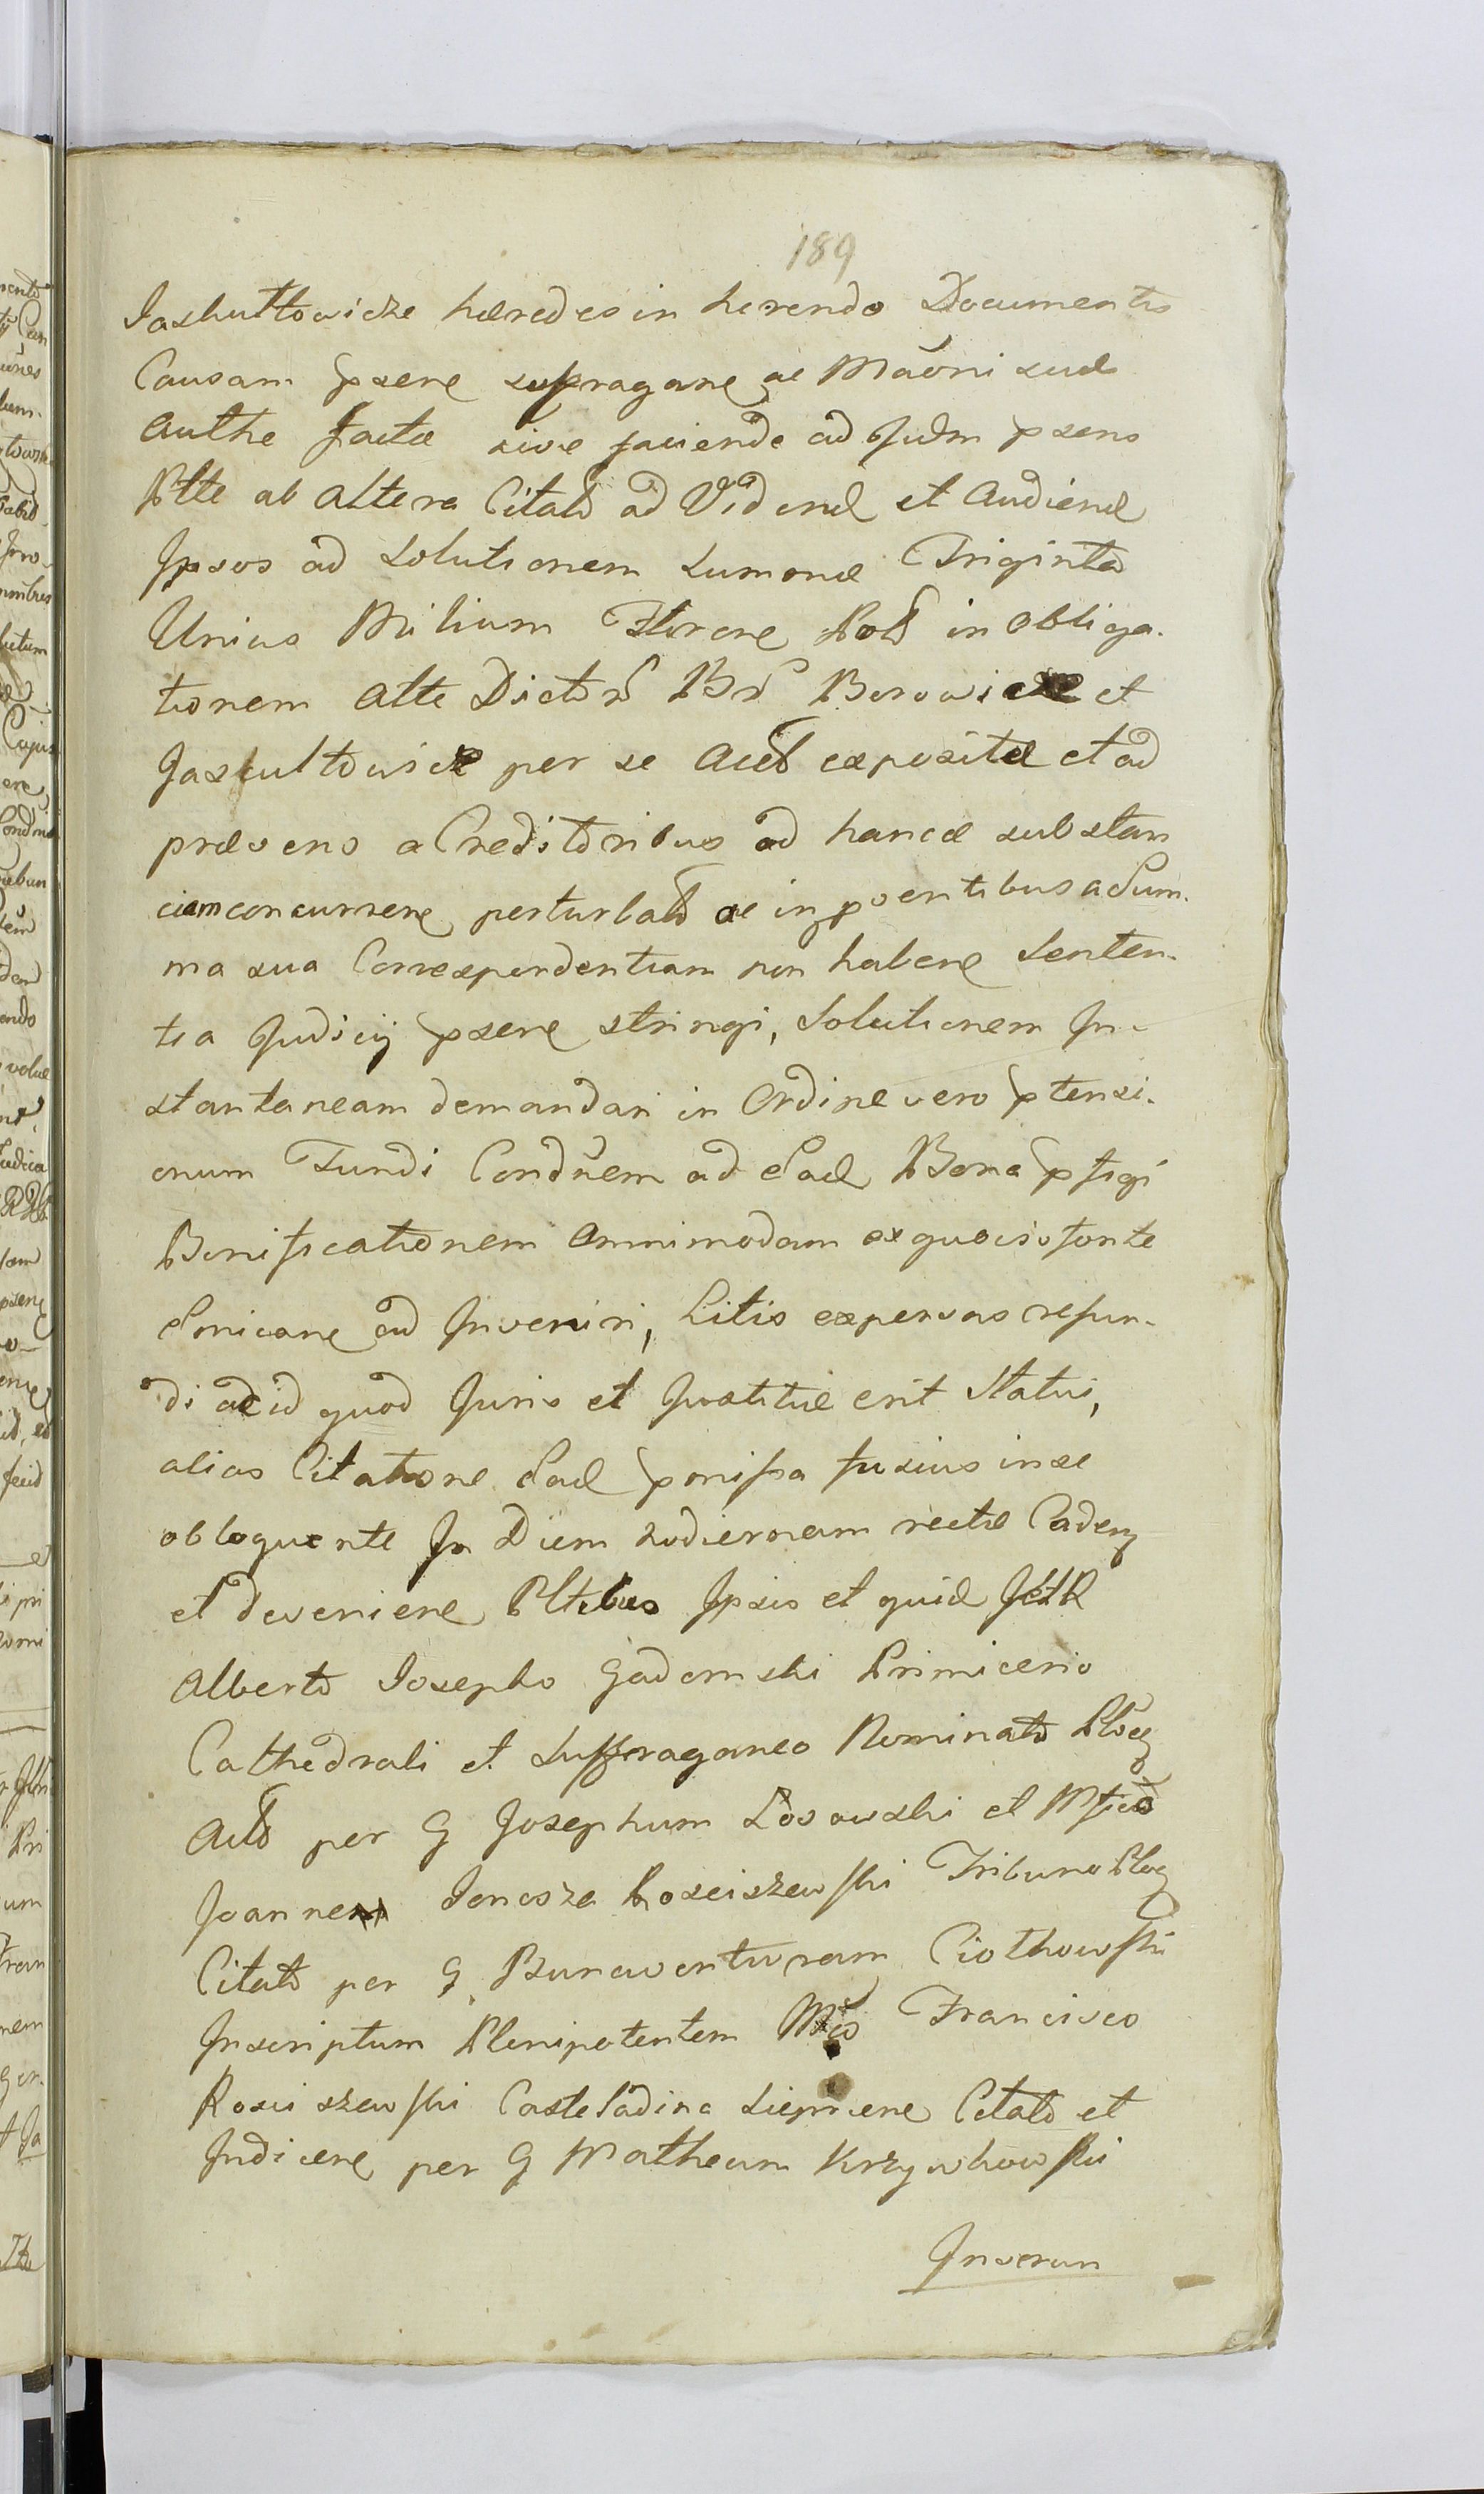 189
Jaskułtowicze hæredes inhærendo Documentis
Causam psene supragane ac Maõni suæ
Authe factæ sive faciendæ ad Judm psens
Plte ab altera Citatis ad Vidend et Audiend
Ipsos ad Solutionem Summæ Triginta
Unius Milium Floren Pol in obliga-
tionem alte Dictor Br Borowicze et
Jaskultowicze per se Acto expositæ et ad
præsens a Creditoribus ad hancce substan
ciam concurrene perturbatis ac in poentibus a Sum-
ma sua Correspondentiam non habene Senten-
tia Judicij psene stringi, Solutionem In-
stantaneam demandari in Ordine vero ptensi-
onum Fundi Condnem ad Ead Bona pfigi
Bonificationem omnimodam ex quovis fonte
Emicane ad Inveniri, Litis expensas refun-
di ac id quod Juris et Justitiæ erit Statui,
alias Citatione Ead pmissa fusius in se
obloquente In Diem hodiernam recte Caden
et deveniene Pltibus Ipsis et quid
Alberto Josepho Gadomski Primicerio
Cathedrali et Suffraganeo Nominato Ploc
Acto per G Josephum Łosowski et Mfico
Joannem Jonosza Rosciszewski Tribuno Ploc
Citato per G Bonaventuram Ciołkowski
Inscriptum Plenipotentem Mfco Francisco
Rosciszewski Castelladina Sieprcene Citato et
Indicene per G Matheum Krzywkowski
Inveran